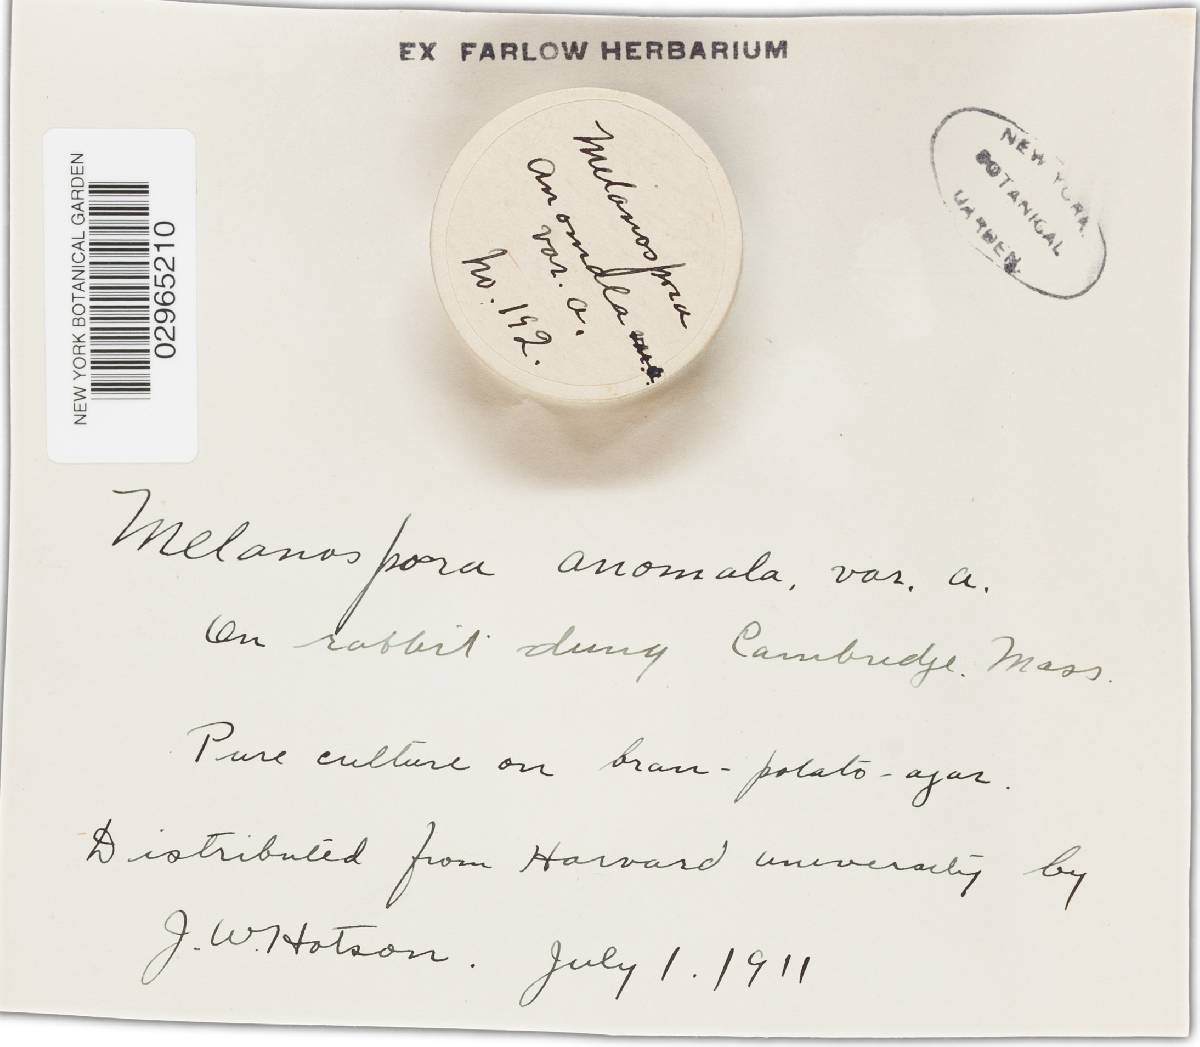 EX FARLOW HERBARIUM
NEW YORK BOTANICAL GARDEN
02965210
Melanospora
anomala
var. a.
No. 192.
NEW YORK
BOTANICAL
GARDEN
Melanospora anomala, var. a.
On rabbit dung Cambridge. Mass.
Pure culture on bran-potato-agar.
Distributed from Harvard university by
J. W. Hotson. July 1. 1911